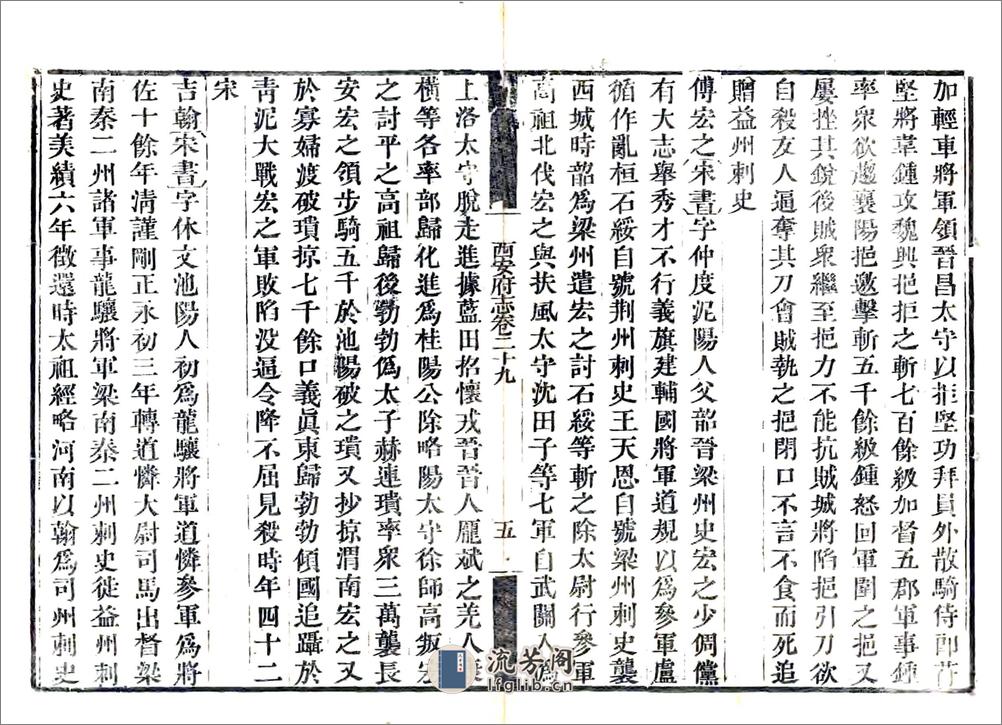 加輕車將軍領晉昌太守以拒堅功拜員外散騎侍郎苻
堅將韋鍾攻魏興挹拒之斬七百餘級加督五郡軍事鍾
率衆欲趨襄陽挹邀擊斬五千餘級鍾怒回軍圍之挹又
屢挫其銳後賊衆繼至挹力不能抗賊城將陷挹引刀欲
自殺友人逼奪其刀會賊執之挹閉口不言不食而死追
贈益州刺史
傅宏之宋書字仲度泥陽人父韶晉梁州史宏之少倜儻
有大志舉秀才不行義旗建輔國將軍道規以爲參軍盧
循作亂桓石綏自號荆州刺史王天恩自號梁州刺史襲
西城時韶爲梁州遣宏之討石綏等斬之除太尉行參軍
高祖北伐宏之與扶風太守沈田子等七軍自武關入僞
西安府志卷二十九
五
上洛太守脫走進據藍田招懷戎晉晉人龐斌之羌人康
橫等各率部歸化進爲桂陽公除略陽太守徐師高叛宏
之討平之高祖歸後勃勃僞太子赫連瓌率衆三萬襲長
安宏之領步騎五千於池陽破之瓌又抄掠渭南宏之又
於寡婦渡破瓌掠七千餘口義眞東歸勃勃傾國追躡於
靑泥大戰宏之軍敗陷没逼令降不屈見殺時年四十二
宋
吉翰宋書字休文池陽人初爲龍驤將軍道憐參軍爲將
佐十餘年淸謹剛正永初三年轉道憐大尉司馬出督梁
南秦二州諸軍事龍驤將軍梁南秦二州刺史徙益州刺
史著美績六年徵還時太祖經略河南以翰爲司州刺史
流芳阁
lfglib.cn